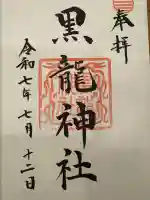 奉拝
黒龍神社
令和七年七月十二日